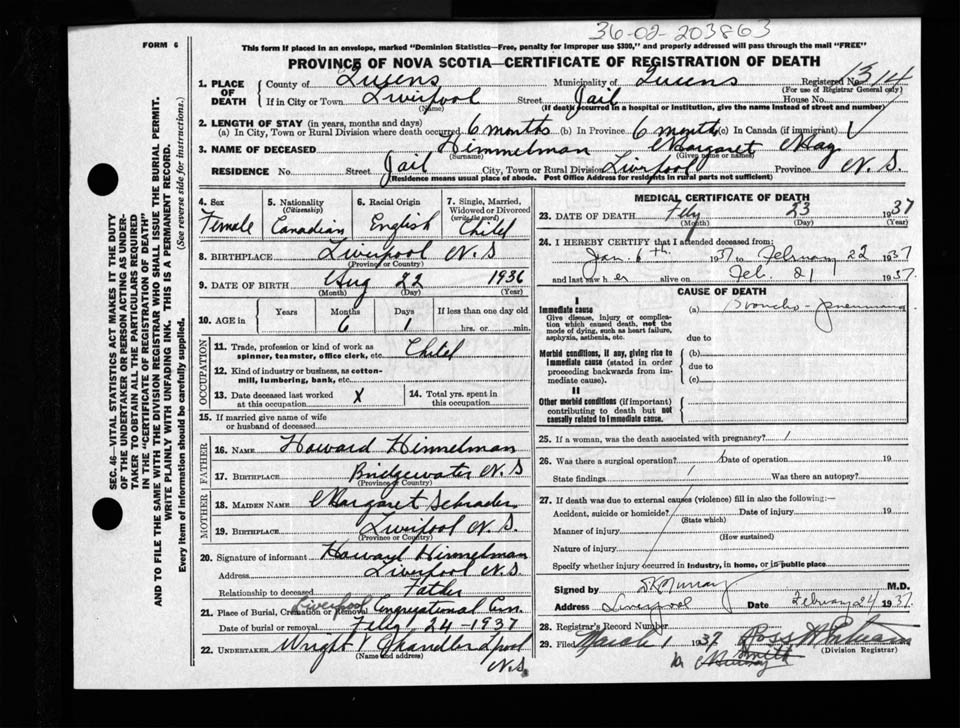 36-02-203863
FORM 6
This form if placed in an envelope, marked "Dominion Statistics—Free, penalty for improper use $300," and properly addressed will pass through the mail "FREE"
PROVINCE OF NOVA SCOTIA—CERTIFICATE OF REGISTRATION OF DEATH
1. PLACE OF DEATH County of Queens Municipality of Queens Registered No. 1314
(For use of Registrar General only)
If in City or Town Liverpool Street Jail House No.
(Name) (If death occurred in a hospital or institution, give its name instead of street and number)
2. LENGTH OF STAY (in years, months and days)
(a) In City, Town or Rural Division where death occurred 6 months (b) In Province 6 months (c) In Canada (if immigrant)
3. NAME OF DECEASED Himmelman Margaret May
(Surname) (Given name or names)
RESIDENCE No. Street Jail City, Town or Rural Division Liverpool Province N.S.
(Residence means usual place of abode. Post Office Address for residents in rural parts not sufficient)
4. Sex Female
5. Nationality (Citizenship) Canadian
6. Racial Origin English
7. Single, Married, Widowed or Divorced (write the word) Child
8. BIRTHPLACE Liverpool N.S
(Province or Country)
9. DATE OF BIRTH Aug 22 1936
(Month) (Day) (Year)
10. AGE in Years Months Days If less than one day old
6 1 hrs. or min.
OCCUPATION
11. Trade, profession or kind of work as spinner, teamster, office clerk, etc. Child
12. Kind of industry or business, as cotton-mill, lumbering, bank, etc.
13. Date deceased last worked at this occupation X
14. Total yrs. spent in this occupation
15. If married give name of wife or husband of deceased
FATHER
16. NAME Howard Himmelman
17. BIRTHPLACE Bridgewater N.S
(Province or Country)
MOTHER
18. MAIDEN NAME Margaret Schrader
19. BIRTHPLACE Liverpool N.S.
(Province or Country)
20. Signature of informant Howard Himmelman
Address Liverpool N.S.
Relationship to deceased Father
21. Place of Burial, Cremation or Removal Liverpool Congregational Cem.
Date of burial or removal Feby 24 - 1937
22. UNDERTAKER Wright & Chandler L'pool
(Name and address) N.S.
MEDICAL CERTIFICATE OF DEATH
23. DATE OF DEATH Feby 23 1937
(Month) (Day) (Year)
24. I HEREBY CERTIFY that I attended deceased from:
Jan. 6th 1937 to February 22 1937
and last saw her alive on Feb. 21 1937.
CAUSE OF DEATH
I
Immediate cause (a) Broncho-pneumonia
Give disease, injury or complication which caused death, not the mode of dying, such as heart failure, asphyxia, asthenia, etc. due to
Morbid conditions, if any, giving rise to immediate cause (stated in order proceeding backwards from immediate cause). (b) due to (c)
II
Other morbid conditions (if important) contributing to death but not causally related to immediate cause.
25. If a woman, was the death associated with pregnancy?
26. Was there a surgical operation? Date of operation 19
State findings Was there an autopsy?
27. If death was due to external causes (violence) fill in also the following:—
Accident, suicide or homicide? Date of injury 19
(State which)
Manner of injury
(How sustained)
Nature of injury
Specify whether injury occurred in industry, in home, or in public place
Signed by Murray M.D.
Address Liverpool Date February 24 1937.
28. Registrar's Record Number
29. Filed March 1 1937
(Division Registrar)
SEC. 46—VITAL STATISTICS ACT MAKES IT THE DUTY
OF THE UNDERTAKER OR PERSON ACTING AS UNDER-
TAKER TO OBTAIN ALL THE PARTICULARS REQUIRED
IN THE "CERTIFICATE OF REGISTRATION OF DEATH"
AND TO FILE THE SAME WITH THE DIVISION REGISTRAR WHO SHALL ISSUE THE BURIAL PERMIT.
WRITE PLAINLY WITH UNFADING INK. THIS IS A PERMANENT RECORD.
Every item of information should be carefully supplied. (See reverse side for instructions.)